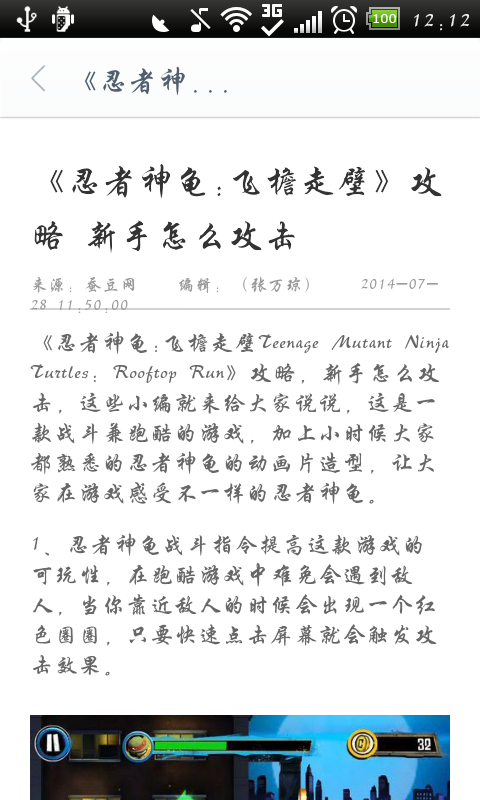 3G
100
12:12
《忍者神...
《忍者神龟:飞檐走壁》攻
略 新手怎么攻击
来源：蚕豆网 编辑：（张万琼） 2014-07-
28 11:50:00
《忍者神龟:飞檐走壁Teenage Mutant Ninja
Turtles：Rooftop Run》攻略，新手怎么攻
击，这些小编就来给大家说说，这是一
款战斗兼跑酷的游戏，加上小时候大家
都熟悉的忍者神龟的动画片造型，让大
家在游戏感受不一样的忍者神龟。
1、忍者神龟战斗指令提高这款游戏的
可玩性，在跑酷游戏中难免会遇到敌
人，当你靠近敌人的时候会出现一个红
色圈圈，只要快速点击屏幕就会触发攻
击效果。
32